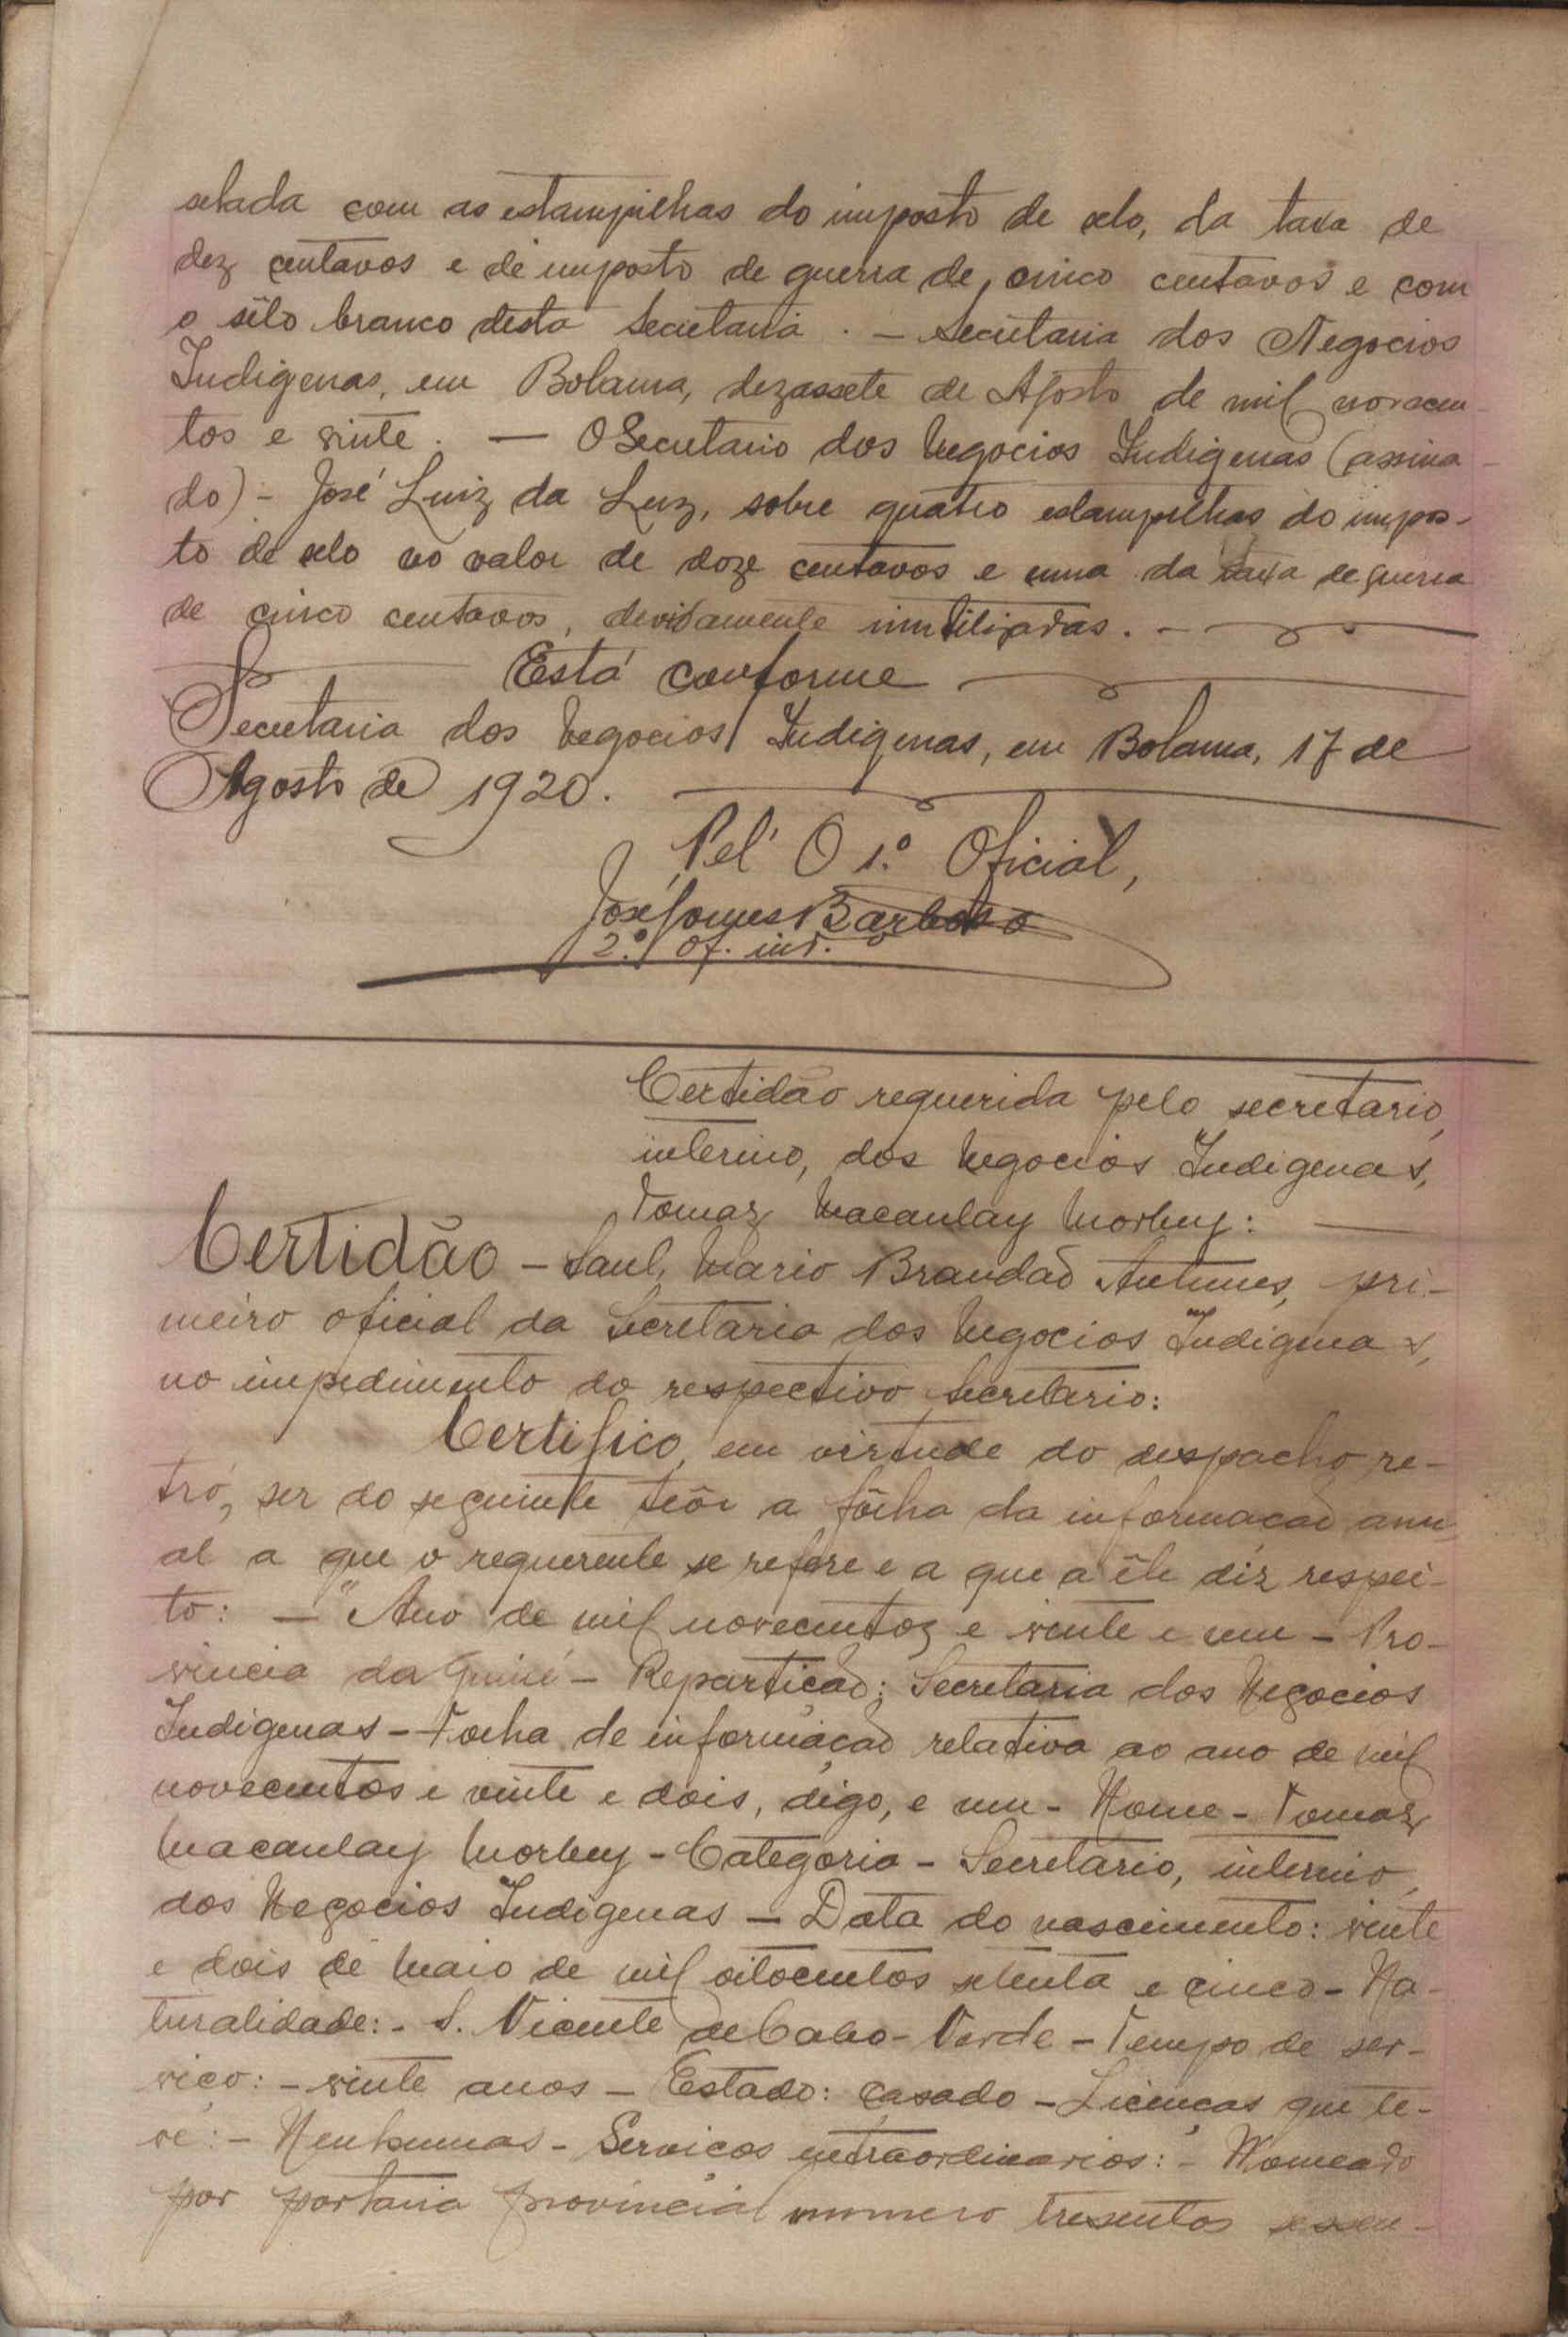 selada com as estampilhas do imposto de selo, da taxa de
dez centavos e de imposto de guerra de, cinco centavos e com
o sêlo branco desta Secretaria . — Secretaria dos Negocios
Indigenas, em Bolama, dezassete de Agosto de mil novecen-
tos e vinte. — O Secretario dos Negocios Indigenas (assina-
do) - José Luiz da Luz, sobre quatro estampilhas do impos-
to de selo no valor de doze centavos e uma da taxa de guerra
de cinco centavos, devidamente inutilizadas. —
Está conforme
Secretaria dos Negocios Indigenas, em Bolama, 17 de
Agosto de 1920.
Pel' O 1.º Oficial,
José Gomes Barbosa
2.º of. int.
Certidão requerida pelo secretario,
interino, dos Negocios Indigenas,
Tomaz Macaulay Morbey: —
Certidão - Saul, Mario Brandão Antunes, pri-
meiro oficial da Secretaria dos Negocios Indigenas,
no impedimento do respectivo Secretario:
Certifico, em virtude do despacho re-
tró, ser do seguinte teôr a fôlha da informação anu-
al a que o requerente se refere e a que a êle diz respei-
to: — "Ano de mil novecentos e vinte e um - Pro-
vincia da Guiné - Repartição: Secretaria dos Negocios
Indigenas - Folha de informação relativa ao ano de mil
novecentos e vinte e dois, digo, e um - Nome - Tomaz
Macaulay Morbey - Categoria - Secretario, interino,
dos Negocios Indigenas - Data do nascimento: vinte
e dois de Maio de mil oitocentos setenta e cinco - Na-
turalidade: - S. Vicente de Cabo-Verde - Tempo de ser-
viço: - vinte anos - Estado: casado - Licenças que te-
ve: - Nenhumas - Serviços extraordinarios: - Nomeado
por portaria provincial numero tresentos sessen-